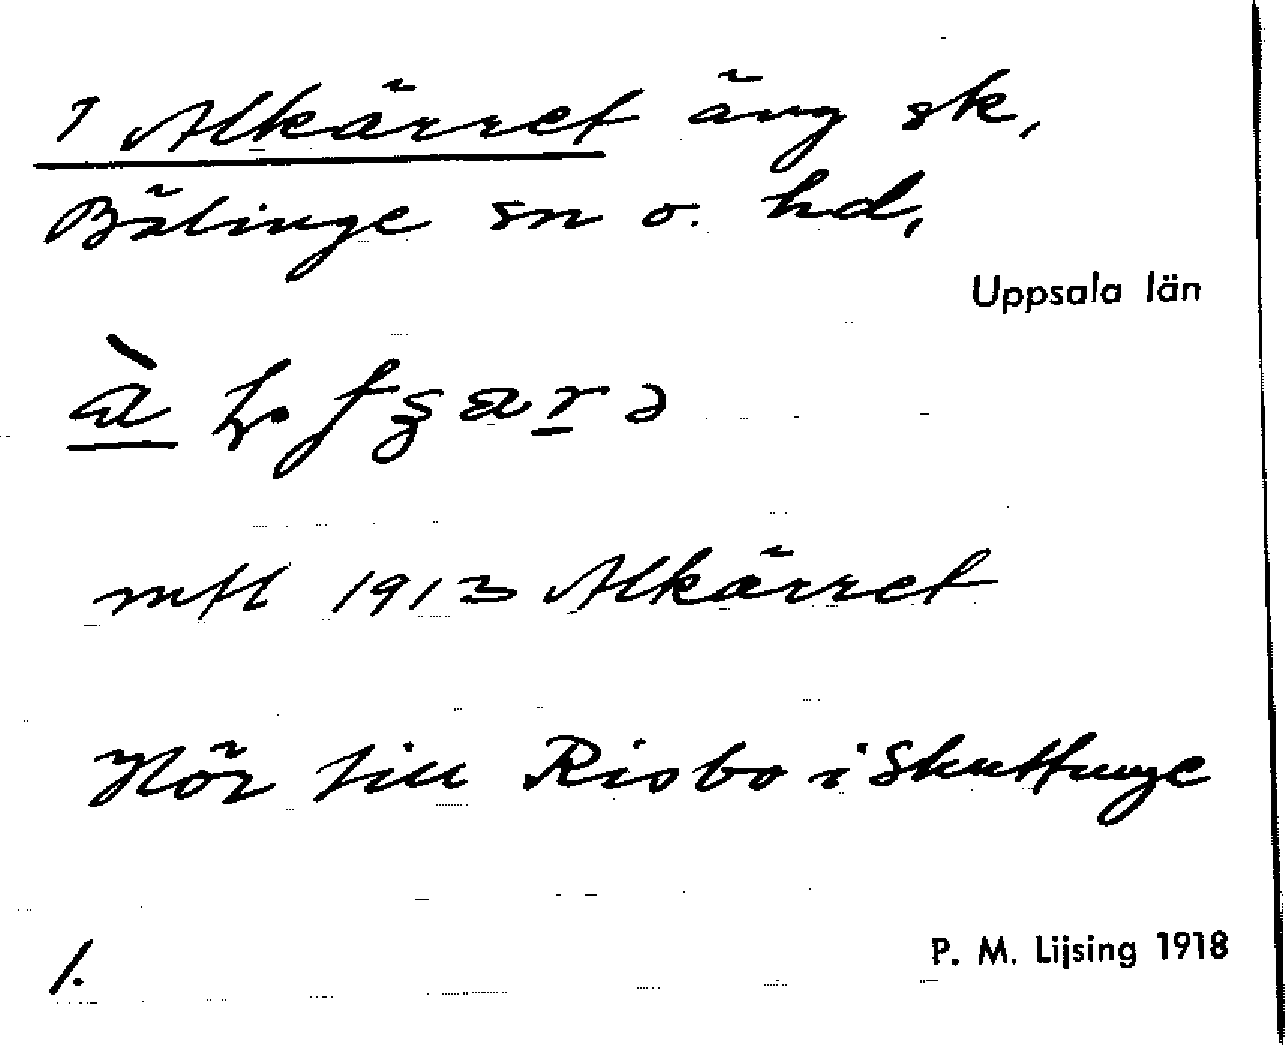 1 Alkärret äng sk,
Bälinge sn o. hd,
Uppsala län
mtl 1913 Alkärret
Hör till Risbo i Skuttunge
1.
P. M. Lijsing 1918